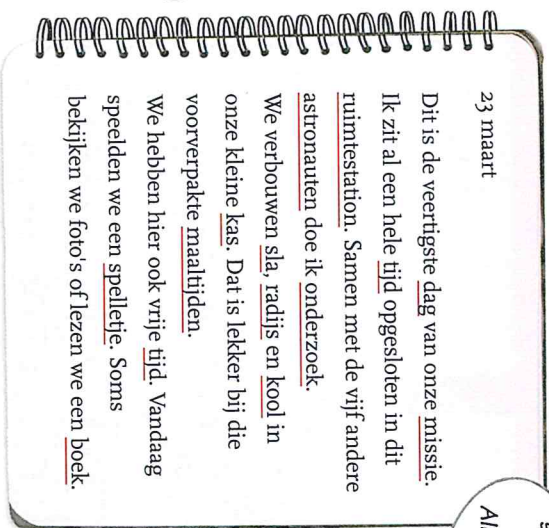 23 maart
Dit is de veertigste dag van onze missie.
Ik zit al een hele tijd opgesloten in dit
ruimtestation. Samen met de vijf andere
astronauten doe ik onderzoek.
We verbouwen sla, radijs en kool in
onze kleine kas. Dat is lekker bij die
voorverpakte maaltijden.
We hebben hier ook vrije tijd. Vandaag
speelden we een spelletje. Soms
bekijken we foto's of lezen we een boek.